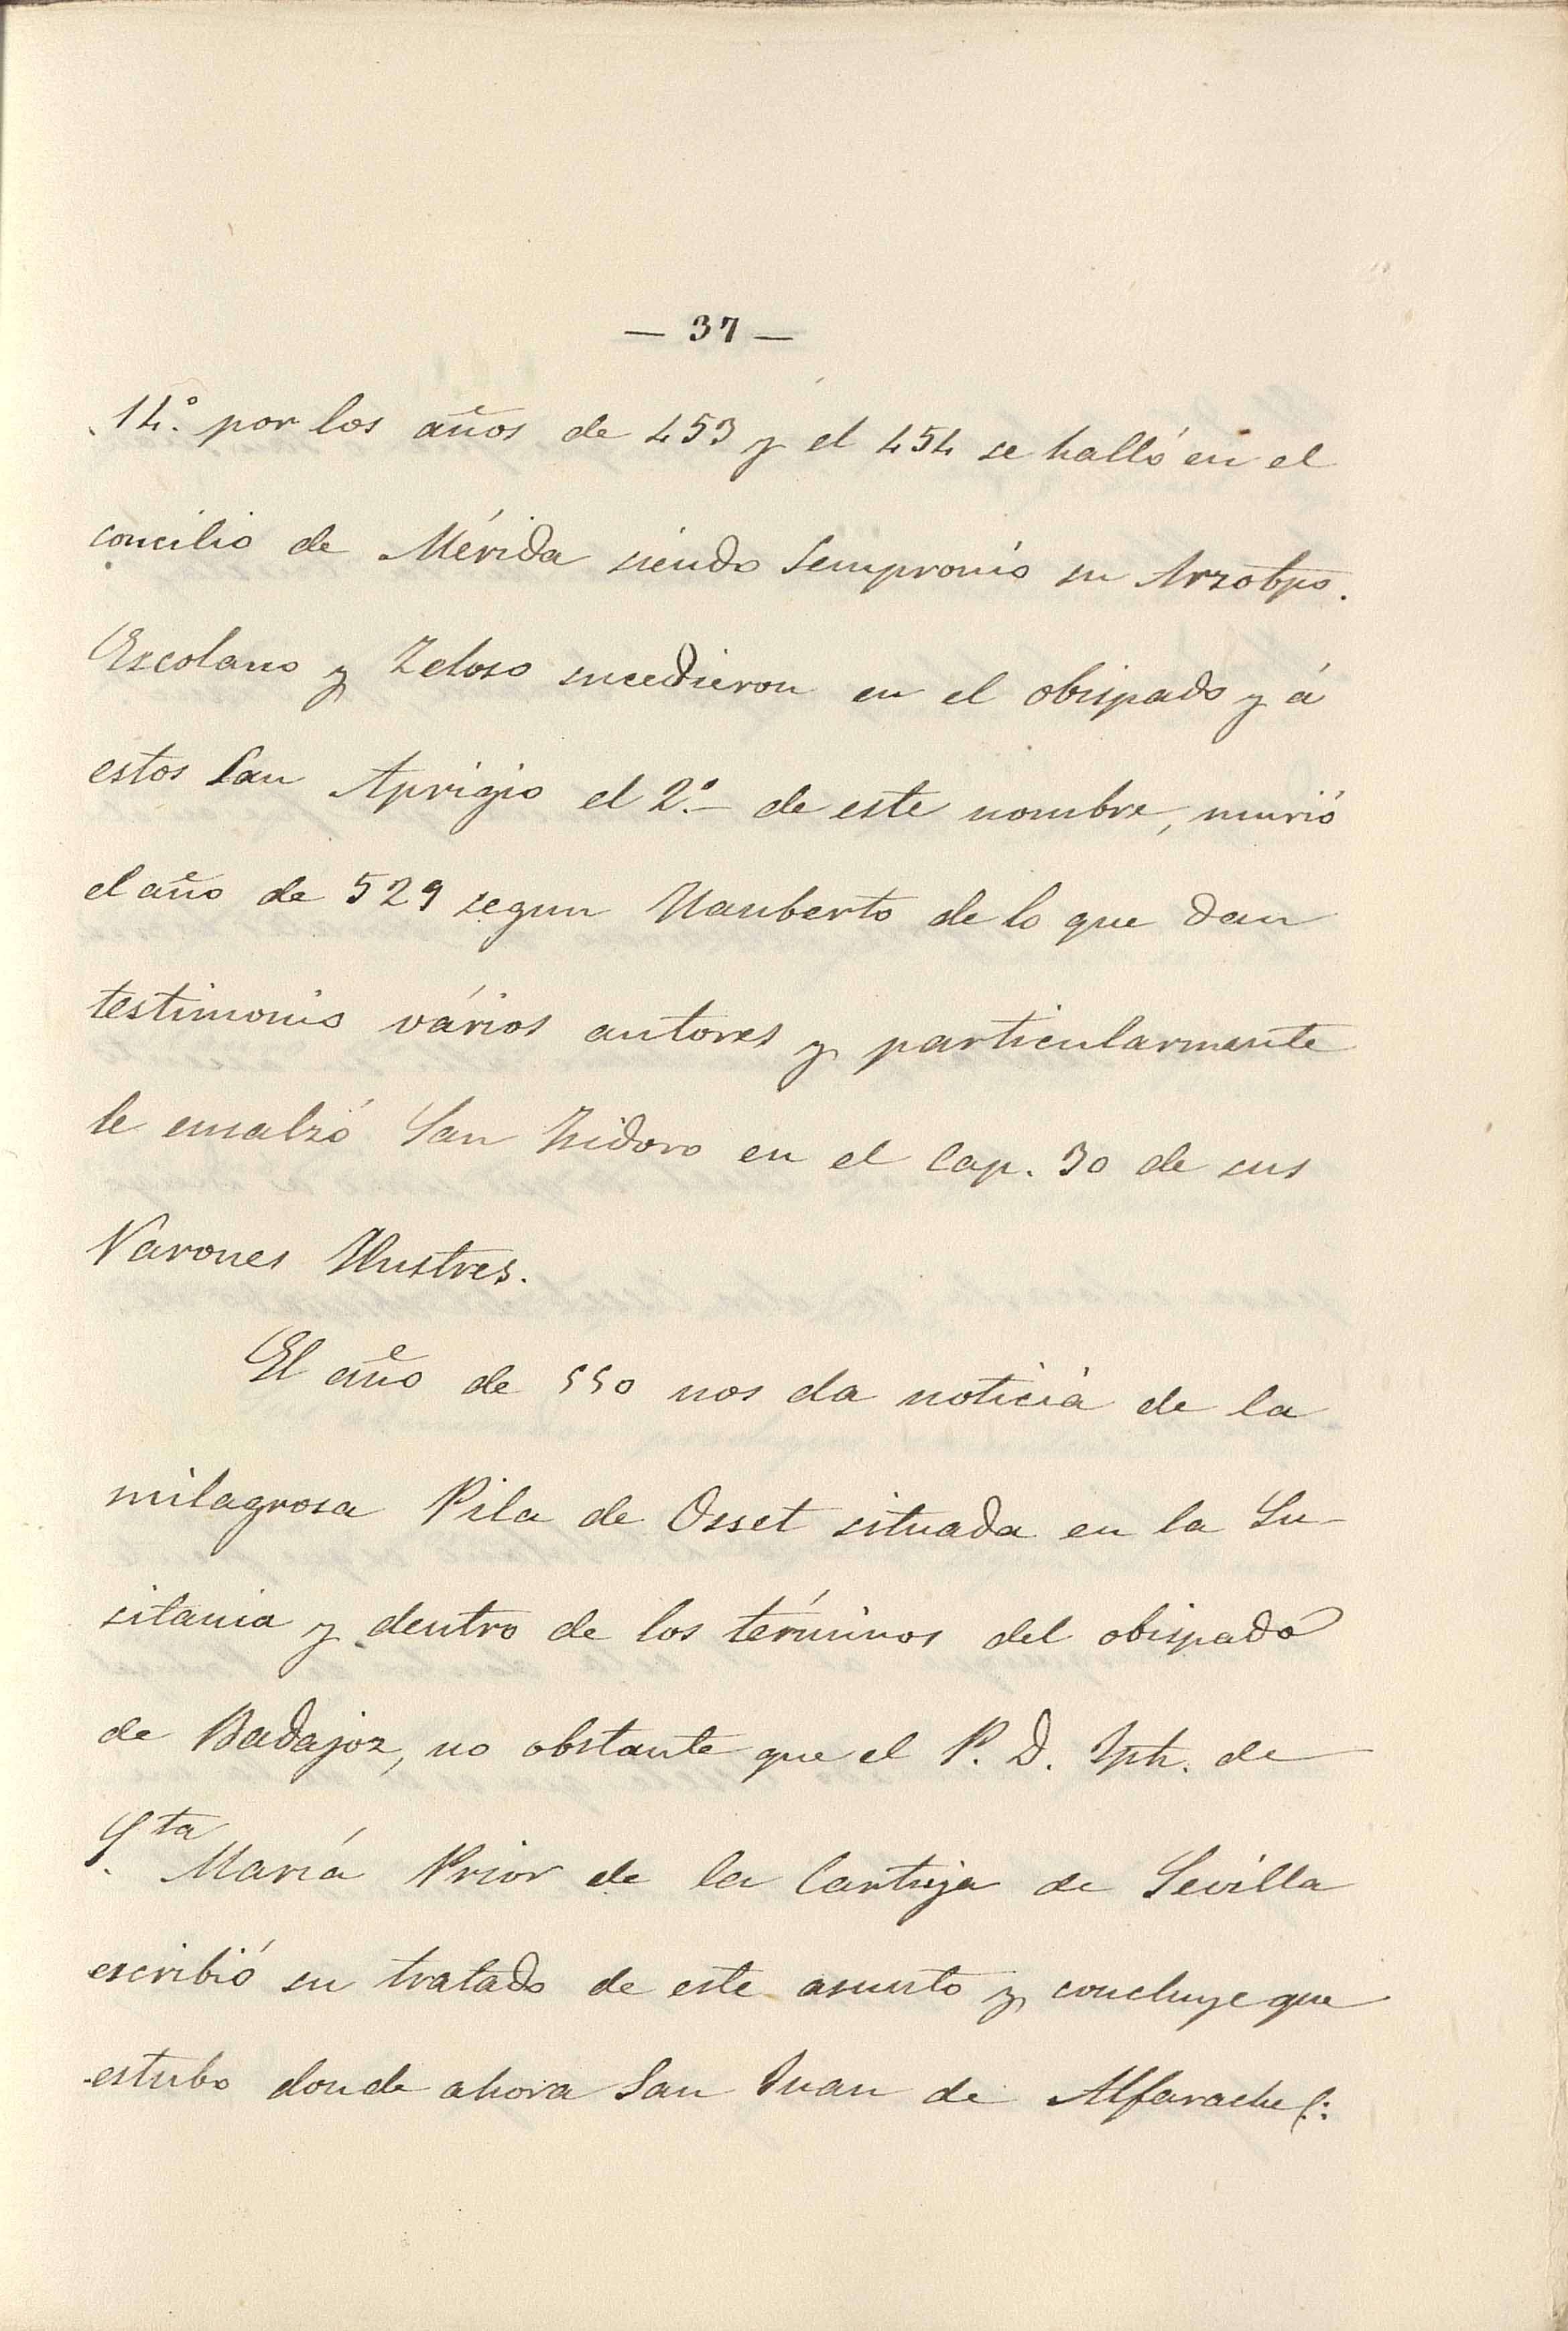 — 37 —
14.º por los años de 453 y el 454 se halló en el
concilio de Mérida siendo Sempronio su Arzobpo.
Escolano y Zeloso sucedieron en el obispado y á
estos San Aprigio el 2.º de este nombre, murió
el año de 529 segun Hauberto de lo que dan
testimonio vários autores y particularmente
le ensalzó San Isidoro en el Cap. 30 de sus
Varones Ilustres.
El año de 550 nos da noticia de la
milagrosa Pila de Osset situada en la Lu-
sitania y dentro de los términos del obispado
de Badajoz, no obstante que el P. D. Jph. de
Sta María Prior de la Cartuja de Sevilla
escribió su tratado de este asunto y concluye que
estubo donde ahora San Juan de Alfarache